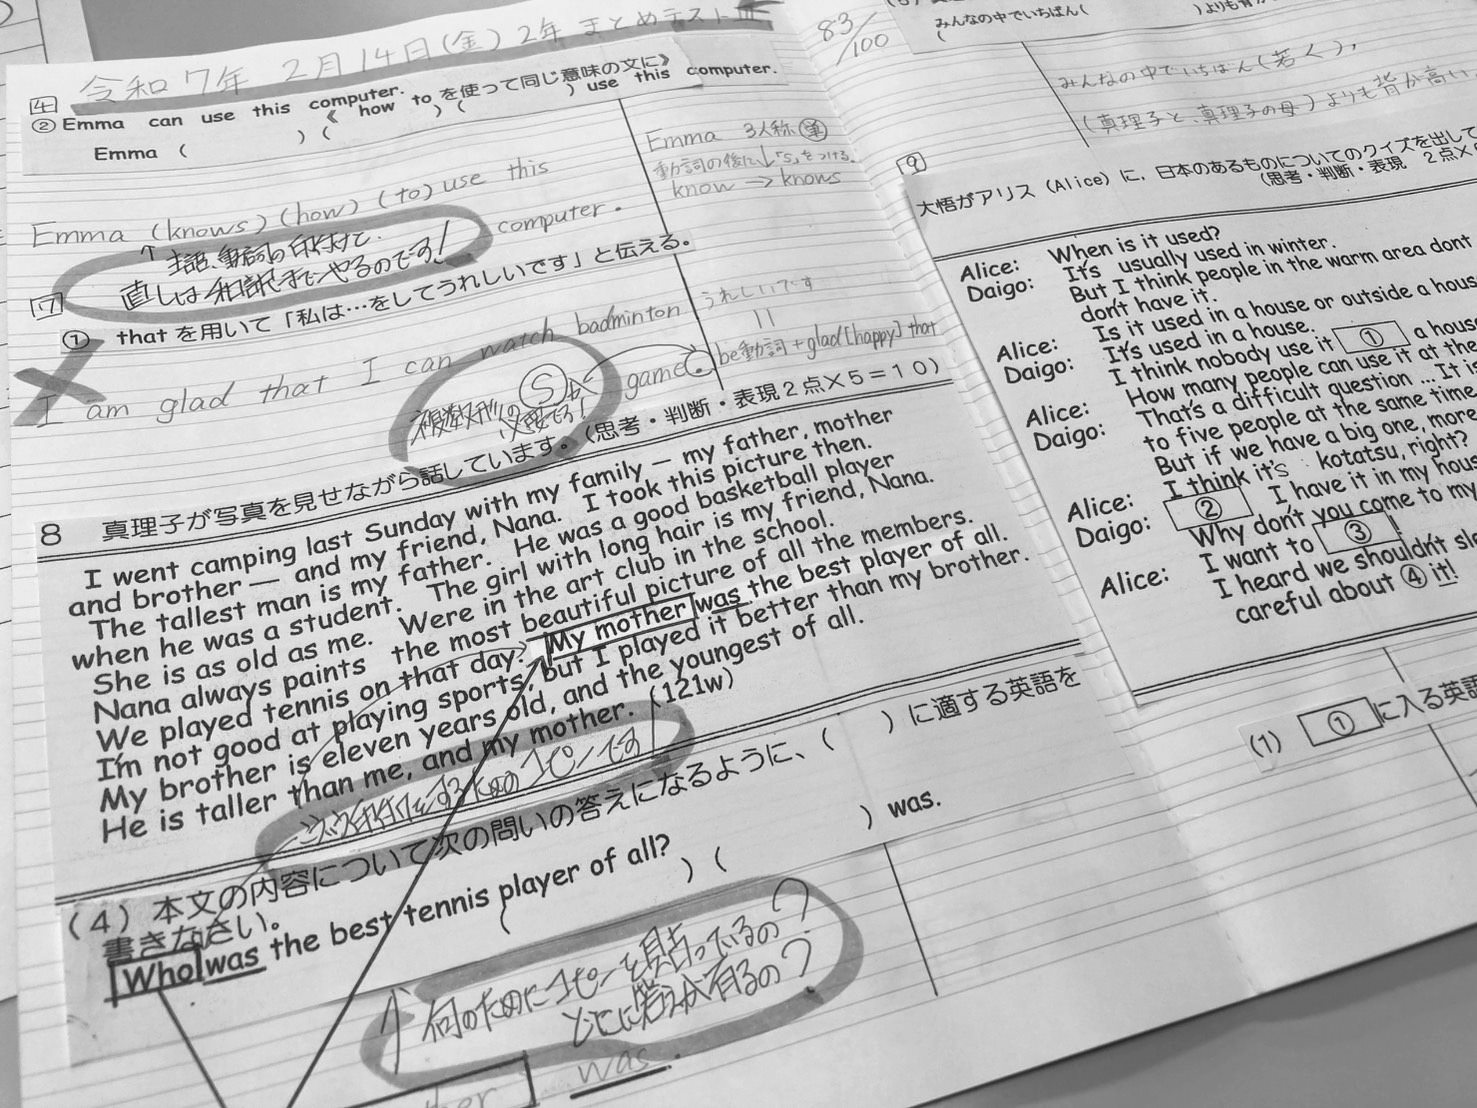 令和7年 2月14日(金) 2年 まとめテスト
83/100
4
② Emma can use this computer.
《 how to を使って同じ意味の文に》
Emma ( ) ( ) ( ) use this computer.
Emma (knows) (how) (to) use this
computer.
↑ 主語、動詞の印付けて、
直しは和訳までやるのです!
Emma 3人称 単
動詞の後に↓「s」をつける
know → knows
7
① that を用いて「私は…をしてうれしいです」と伝える。
I am glad that I can watch badminton
game.
s
複数形の
必要でろ!
うれしいです
be動詞+glad[happy] that
8 真理子が写真を見せながら話しています。(思考・判断・表現2点×5=10)
I went camping last Sunday with my family — my father, mother
and brother — and my friend, Nana. I took this picture then.
The tallest man is my father. He was a good basketball player
when he was a student. The girl with long hair is my friend, Nana.
She is as old as me. Were in the art club in the school.
Nana always paints the most beautiful picture of all the members.
We played tennis on that day. My mother was the best player of all.
I'm not good at playing sports, but I played it better than my brother.
My brother is eleven years old, and the youngest of all.
He is taller than me, and my mother. (121w)
コピーです
(4) 本文の内容について次の問いの答えになるように、( )に適する英語を
書きなさい。
Who was the best tennis player of all?
( ) ( ) was.
↑ 何のためにコピーを貼っているの?
どこに答えが有るの?
was.
みんなの中でいちばん( )よりも背が
みんなの中でいちばん(若く)、
(真理子と、真理子の母)よりも背が高い
9
大悟がアリス (Alice) に、日本のあるものについてのクイズを出して
(思考・判断・表現 2点×
Alice: When is it used?
Daigo: It's usually used in winter.
But I think people in the warm area dont
don't have it.
Alice: Is it used in a house or outside a hous
Daigo: It's used in a house.
I think nobody use it ① a hous
Alice: How many people can use it at the
Daigo: That's a difficult question ...It is
to five people at the same time
But if we have a big one, more
Alice: I think it's kotatsu, right?
Daigo: ② I have it in my hous
Why don't you come to my
Alice: I want to ③ !
I heard we shouldn't sle
careful about ④ it!
(1) ① に入る英語